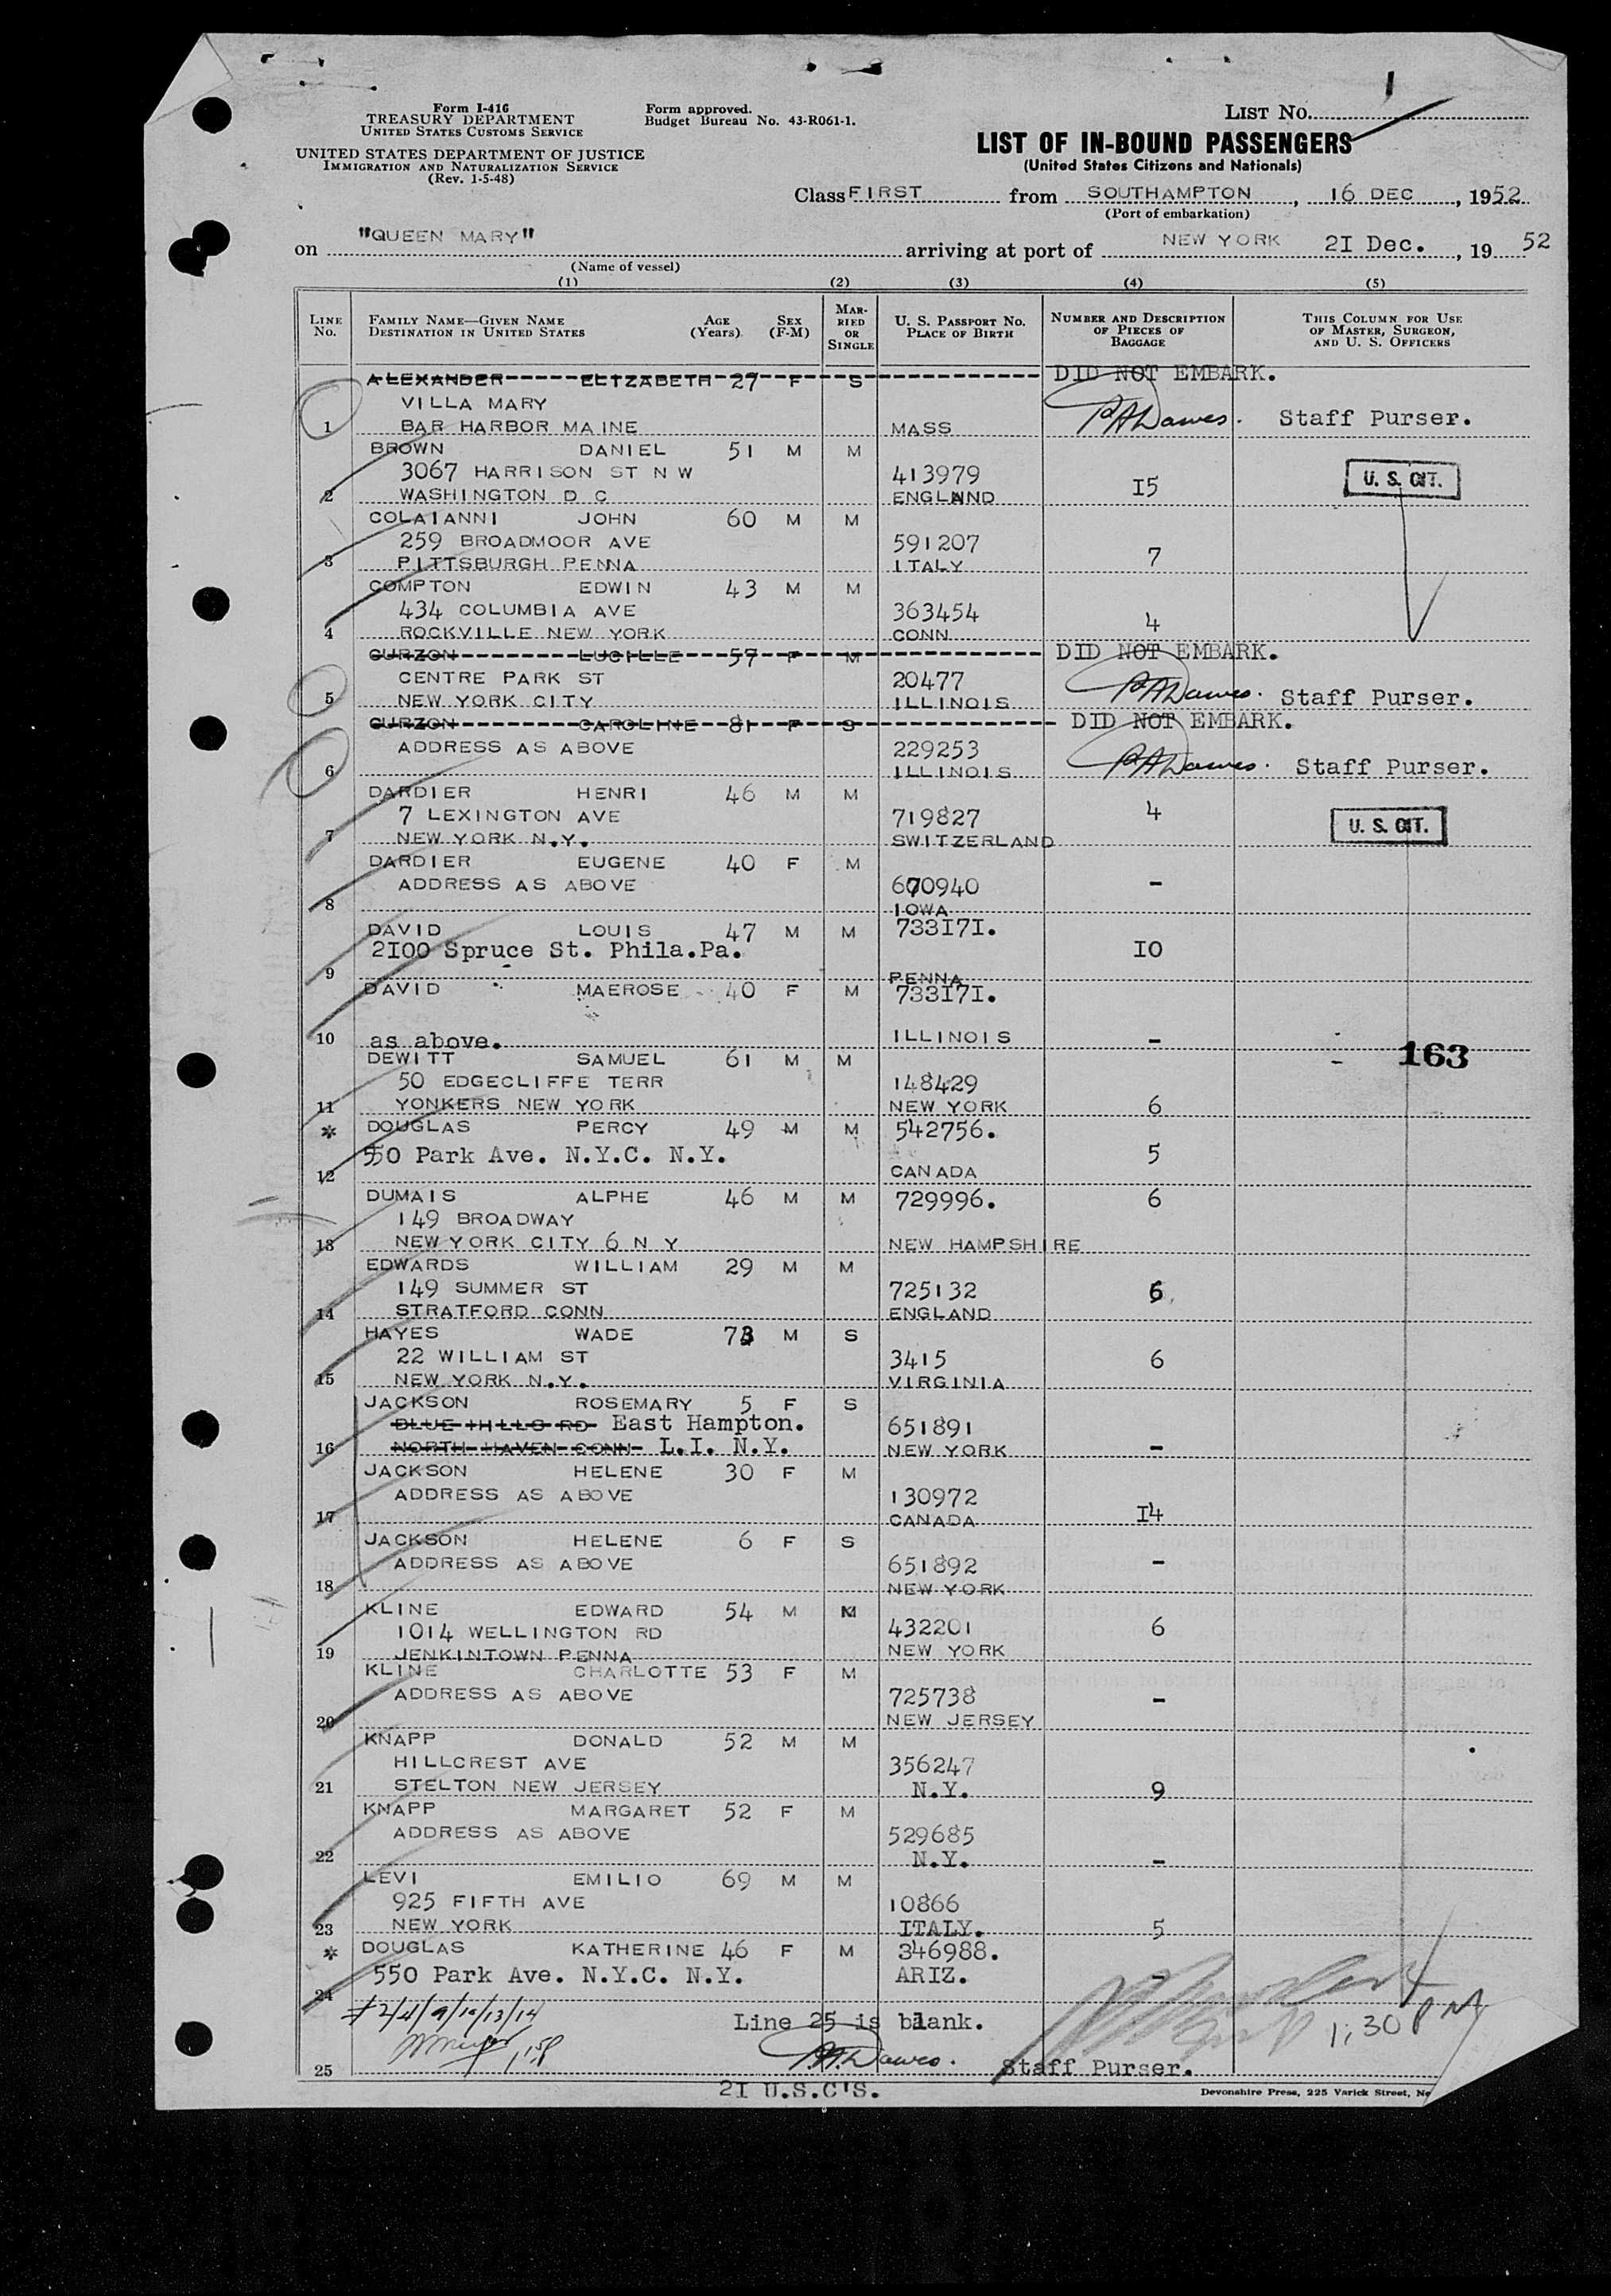 Form I-416
TREASURY DEPARTMENT
UNITED STATES CUSTOMS SERVICE
UNITED STATES DEPARTMENT OF JUSTICE
IMMIGRATION AND NATURALIZATION SERVICE
(Rev. 1-5-48)
Form approved.
Budget Bureau No. 43-R061-1.
LIST No. 1
LIST OF IN-BOUND PASSENGERS
(United States Citizens and Nationals)
Class FIRST from SOUTHAMPTON, 16 DEC, 1952
(Port of embarkation)
on "QUEEN MARY" arriving at port of NEW YORK 2I Dec., 19 52
(Name of vessel)
(1) (2) (3) (4) (5)
LINE No. FAMILY NAME—GIVEN NAME DESTINATION IN UNITED STATES AGE (Years) SEX (F-M) MARRIED OR SINGLE U. S. PASSPORT NO. PLACE OF BIRTH NUMBER AND DESCRIPTION OF PIECES OF BAGGAGE THIS COLUMN FOR USE OF MASTER, SURGEON, AND U. S. OFFICERS
ALEXANDER ELIZABETH 27 F S DID NOT EMBARK.
VILLA MARY P.A.Dawes. Staff Purser.
1 BAR HARBOR MAINE MASS
BROWN DANIEL 51 M M
3067 HARRISON ST N W 413979 U. S. CIT.
2 WASHINGTON D C ENGLAND I5
COLAIANNI JOHN 60 M M
259 BROADMOOR AVE 591207
3 PITTSBURGH PENNA ITALY 7
COMPTON EDWIN 43 M M
434 COLUMBIA AVE 363454
4 ROCKVILLE NEW YORK CONN 4
CURZON LUCILLE 57 F M DID NOT EMBARK.
CENTRE PARK ST 20477
5 NEW YORK CITY ILLINOIS P.A.Dawes. Staff Purser.
CURZON CAROLINE 81 F S DID NOT EMBARK.
ADDRESS AS ABOVE 229253
6 ILLINOIS P.A.Dawes. Staff Purser.
DARDIER HENRI 46 M M
7 LEXINGTON AVE 719827 4 U. S. CIT.
7 NEW YORK N.Y. SWITZERLAND
DARDIER EUGENE 40 F M
ADDRESS AS ABOVE 670940 -
8 IOWA
DAVID LOUIS 47 M M 733I7I.
2I00 Spruce St. Phila.Pa. I0
9 PENNA
DAVID MAEROSE 40 F M 733I7I.
10 as above. ILLINOIS -
163
DEWITT SAMUEL 61 M M
50 EDGECLIFFE TERR 148429
11 YONKERS NEW YORK NEW YORK 6
* DOUGLAS PERCY 49 M M 542756.
550 Park Ave. N.Y.C. N.Y. 5
12 CANADA
DUMAIS ALPHE 46 M M 729996. 6
149 BROADWAY
13 NEW YORK CITY 6 N Y NEW HAMPSHIRE
EDWARDS WILLIAM 29 M M
149 SUMMER ST 725132 6
14 STRATFORD CONN ENGLAND
HAYES WADE 73 M S
22 WILLIAM ST 3415 6
15 NEW YORK N.Y. VIRGINIA
JACKSON ROSEMARY 5 F S
BLUE HILLS RD East Hampton. 651891
16 NORTH HAVEN CONN L.I. N.Y. NEW YORK -
JACKSON HELENE 30 F M
ADDRESS AS ABOVE 130972
17 CANADA I4
JACKSON HELENE 6 F S
ADDRESS AS ABOVE 651892 -
18 NEW YORK
KLINE EDWARD 54 M M
1014 WELLINGTON RD 432201 6
19 JENKINTOWN PENNA NEW YORK
KLINE CHARLOTTE 53 F M
ADDRESS AS ABOVE 725738 -
20 NEW JERSEY
KNAPP DONALD 52 M M
HILLCREST AVE 356247
21 STELTON NEW JERSEY N.Y. 9
KNAPP MARGARET 52 F M
ADDRESS AS ABOVE 529685
22 N.Y. -
LEVI EMILIO 69 M M
925 FIFTH AVE 10866
23 NEW YORK ITALY. 5
* DOUGLAS KATHERINE 46 F M 346988.
550 Park Ave. N.Y.C. N.Y. ARIZ. -
24
#2/4/9/10/13/14
Line 25 is blank. 1:30 PM
P.A.Dawes. Staff Purser.
25
2I U.S.C'S.
Devonshire Press, 225 Varick Street, Ne